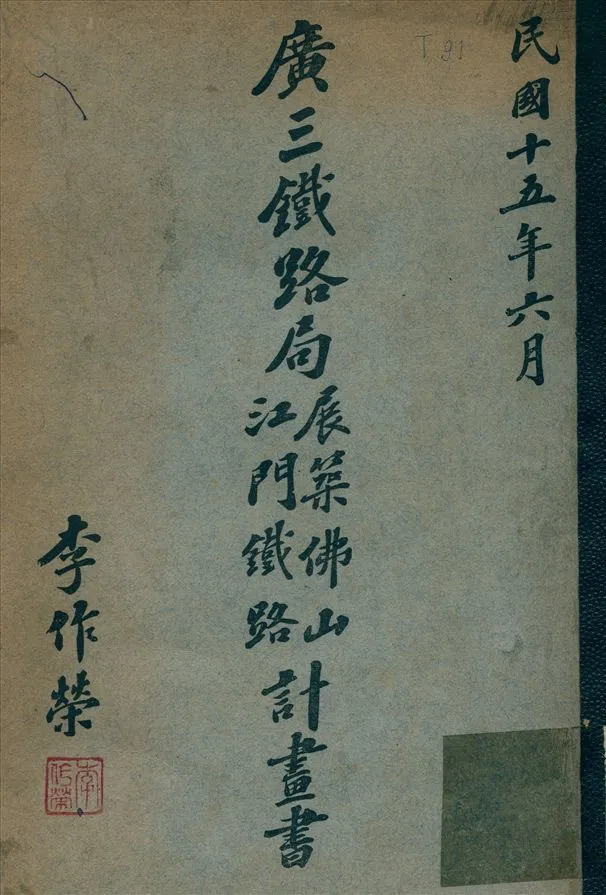 民國十五年六月
廣三鐵路局展築佛山江門鐵路計畫書
李作榮
李作榮
T 91